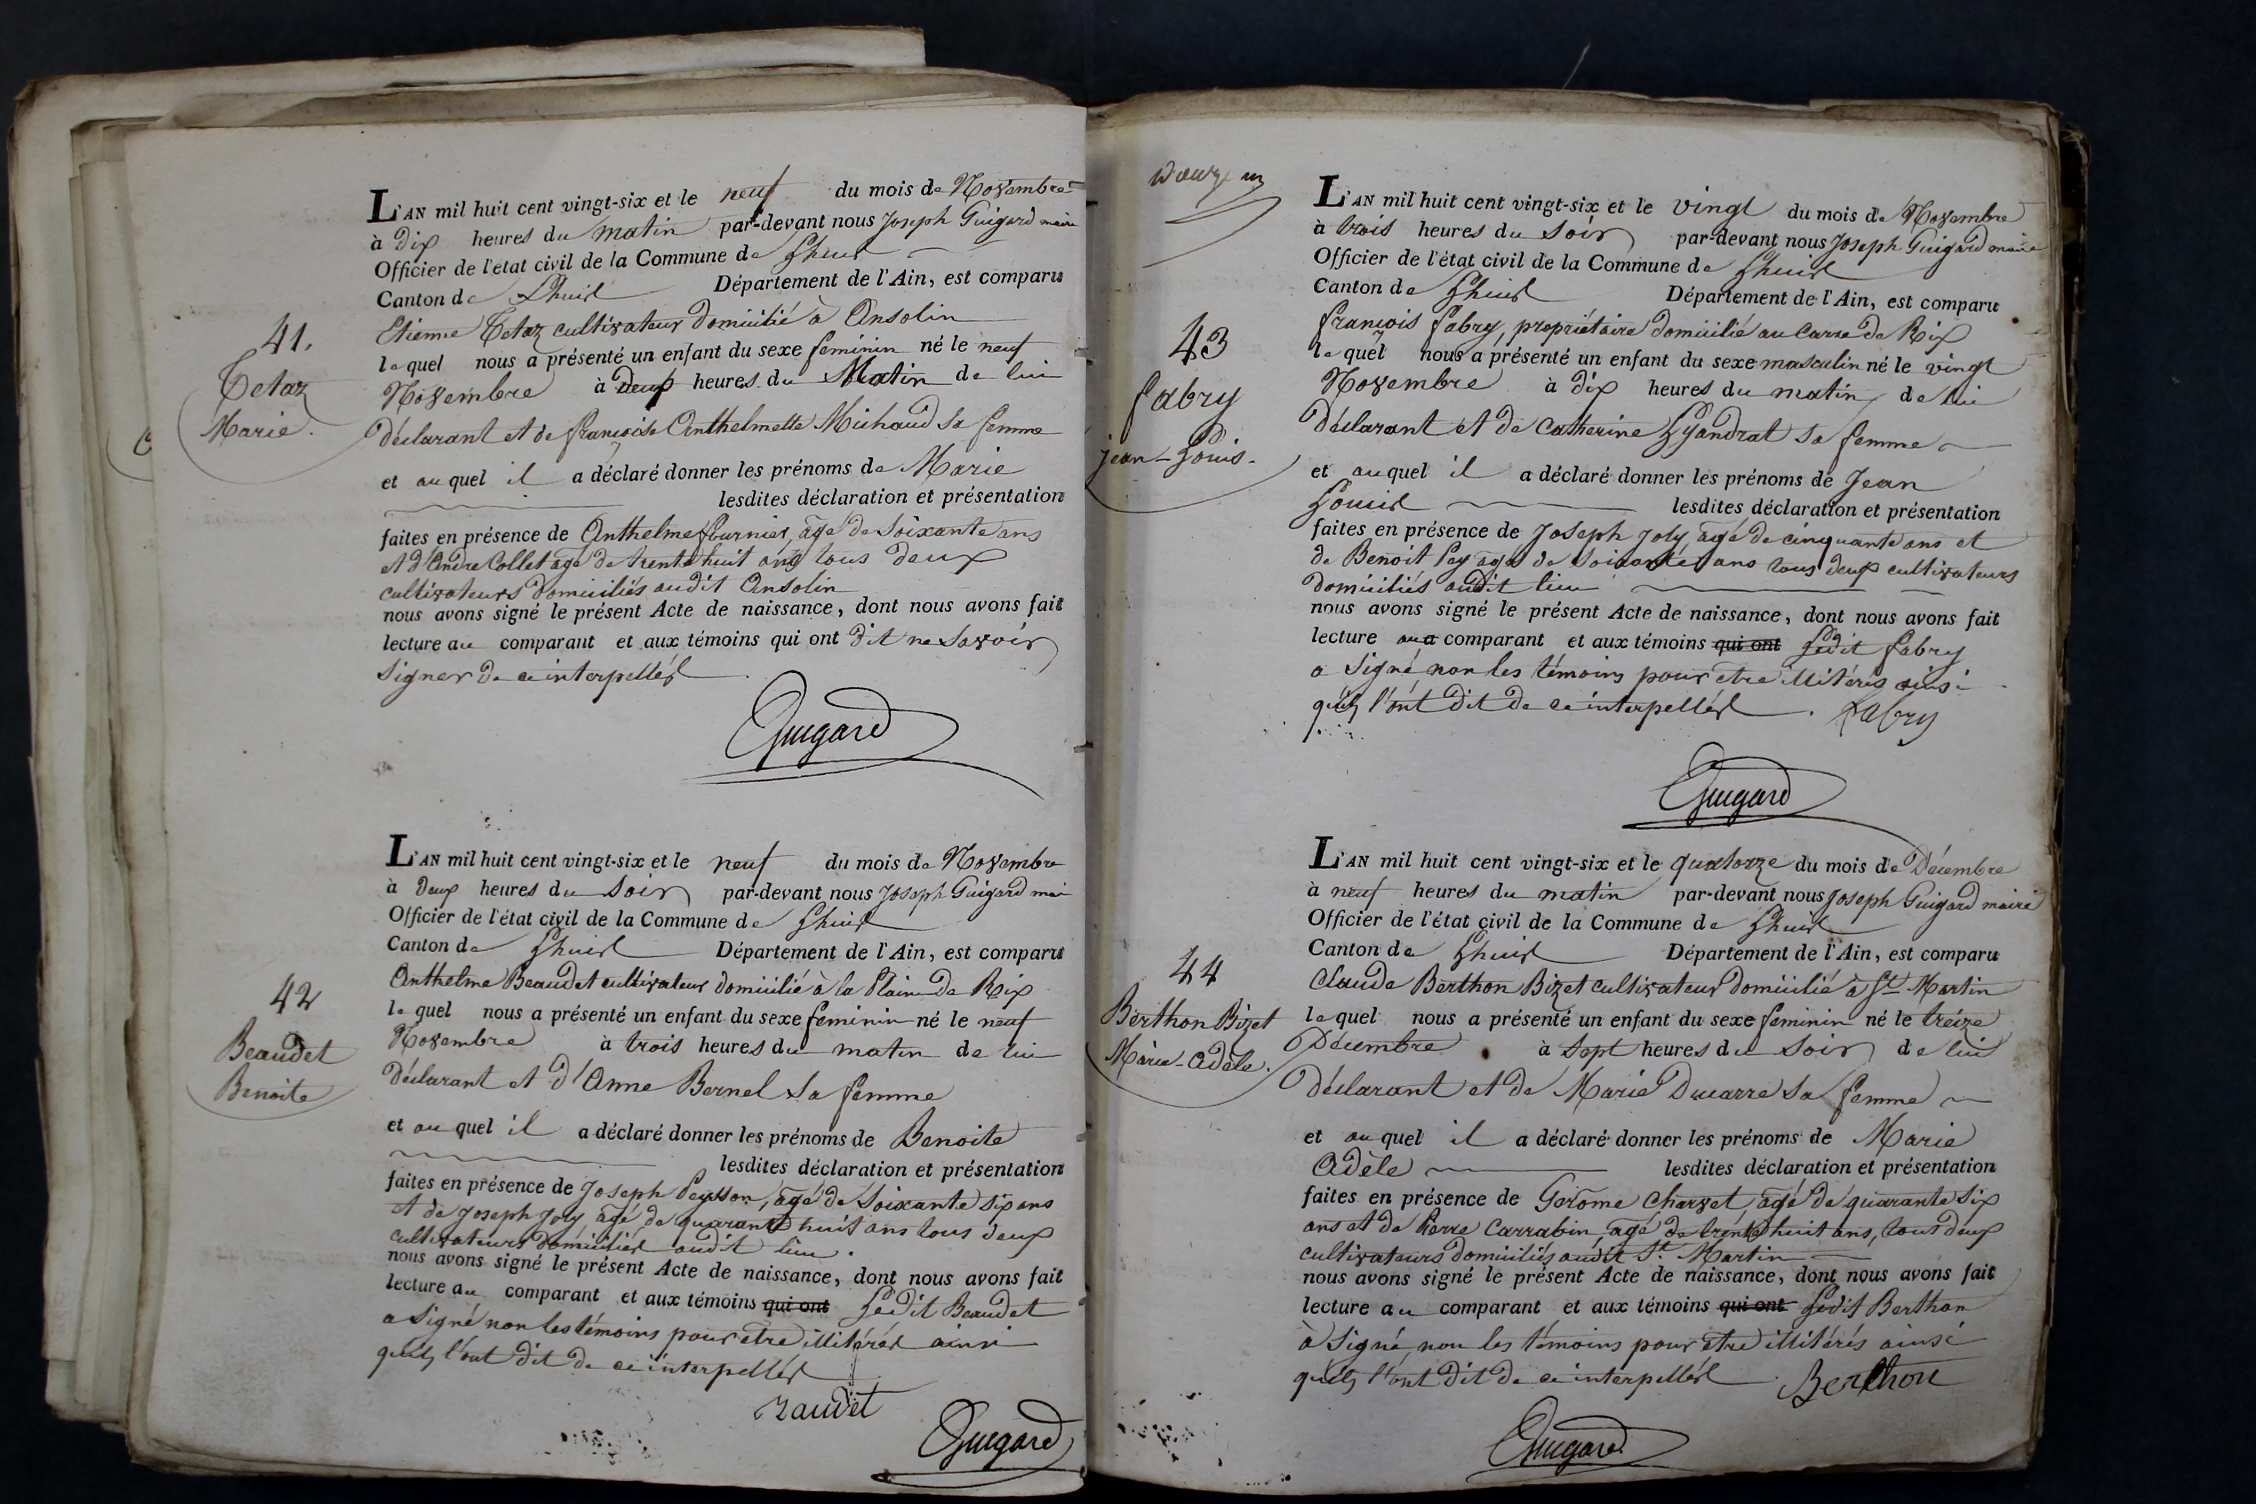 L'AN mil huit cent vingt-six et le neuf du mois de Novembre
à dix heures du matin par-devant nous Joseph Guigard maire
Officier de l'état civil de la Commune de Lhuis
Canton de Lhuis Département de l'Ain, est comparu
Etienne Tetaz cultivateur domicilié à Ansolin
lequel nous a présenté un enfant du sexe feminin né le neuf
Novembre à deux heures du Matin de lui
41.
Tetaz
Marie.
déclarant et de françoise Anthelmette Michaud sa femme
et auquel il a déclaré donner les prénoms de Marie
lesdites déclaration et présentation
faites en présence de Anthelme fournier, agé de Soixante ans
et d'André Collet agé de trente huit ans tous deux
cultivateurs domiciliés audit Ansolin
nous avons signé le présent Acte de naissance, dont nous avons fait
lecture au comparant et aux témoins qui ont dit ne Savoir
Signer de ce interpellés
Guigard
L'AN mil huit cent vingt-six et le neuf du mois de Novembre
à deux heures du Soir par-devant nous Joseph Guigard mai
Officier de l'état civil de la Commune de Lhuis
Canton de Lhuis Département de l'Ain, est comparu
Anthelme Beaudet cultivateur domicilié à la Plaine de Rix
lequel nous a présenté un enfant du sexe feminin né le neuf
Novembre à trois heures du matin de lui
42
Beaudet
Benoite
Déclarant et d'Anne Bernel Sa femme
et auquel il a déclaré donner les prénoms de Benoite
lesdites déclaration et présentation
faites en présence de Joseph Peysson, agé de Soixante Six ans
et de Joseph Joly, agé de quarante huit ans tous deux
cultivateurs domiciliés audit lieu.
nous avons signé le présent Acte de naissance, dont nous avons fait
lecture au comparant et aux témoins qui ont Ledit Beaudet
a Signé non les témoins pour être illitérés ainsi
quils l'ont dit de ce interpellés
Guigard
L'AN mil huit cent vingt-six et le vingt du mois de Novembre
à trois heures du Soir par-devant nous Joseph Guigard maire
Officier de l'état civil de la Commune de Lhuis
Canton de Lhuis Département de l'Ain, est comparu
françois fabry, propriétaire domicilié au Carre de Rix
lequel nous a présenté un enfant du sexe masculin né le vingt
Novembre à dix heures du matin de lui
43
fabry
jean-Louis.
Déclarant et de Catherine Lyandrat sa femme
et auquel il a déclaré donner les prénoms de Jean
Louis lesdites déclaration et présentation
faites en présence de Joseph Joly, agé de cinquante ans et
de Benoit Pey agé de Soixante ans tous deux cultivateurs
domiciliés audit lieu
nous avons signé le présent Acte de naissance, dont nous avons fait
lecture au comparant et aux témoins qui ont Ledit fabry
a Signé, non les témoins pour être illitérés ainsi
quils l'ont dit de ce interpellés. Fabry
Guigard
L'AN mil huit cent vingt-six et le quatorze du mois de Décembre
à neuf heures du matin par-devant nous Joseph Guigard maire
Officier de l'état civil de la Commune de Lhuis
Canton de Lhuis Département de l'Ain, est comparu
Claude Berthon Bizet cultivateur domicilié à St. Martin
lequel nous a présenté un enfant du sexe feminin né le treize
Décembre à Sept heures du Soir de lui
44
Berthon Bizet
Marie-Adèle.
déclarant et de Marie Ducarre Sa femme
et auquel il a déclaré donner les prénoms de Marie
Adèle lesdites déclaration et présentation
faites en présence de Gerôme Charvet, agé de quarante Six
ans et de Pierre Carrabin, agé de trente huit ans, tous deux
cultivateurs domiciliés audit St. Martin
nous avons signé le présent Acte de naissance, dont nous avons fait
lecture au comparant et aux témoins qui ont Ledit Berthon
à Signé, non les témoins pour être illitérés ainsi
quils l'ont dit de ce interpellés. Berthon
Guigard